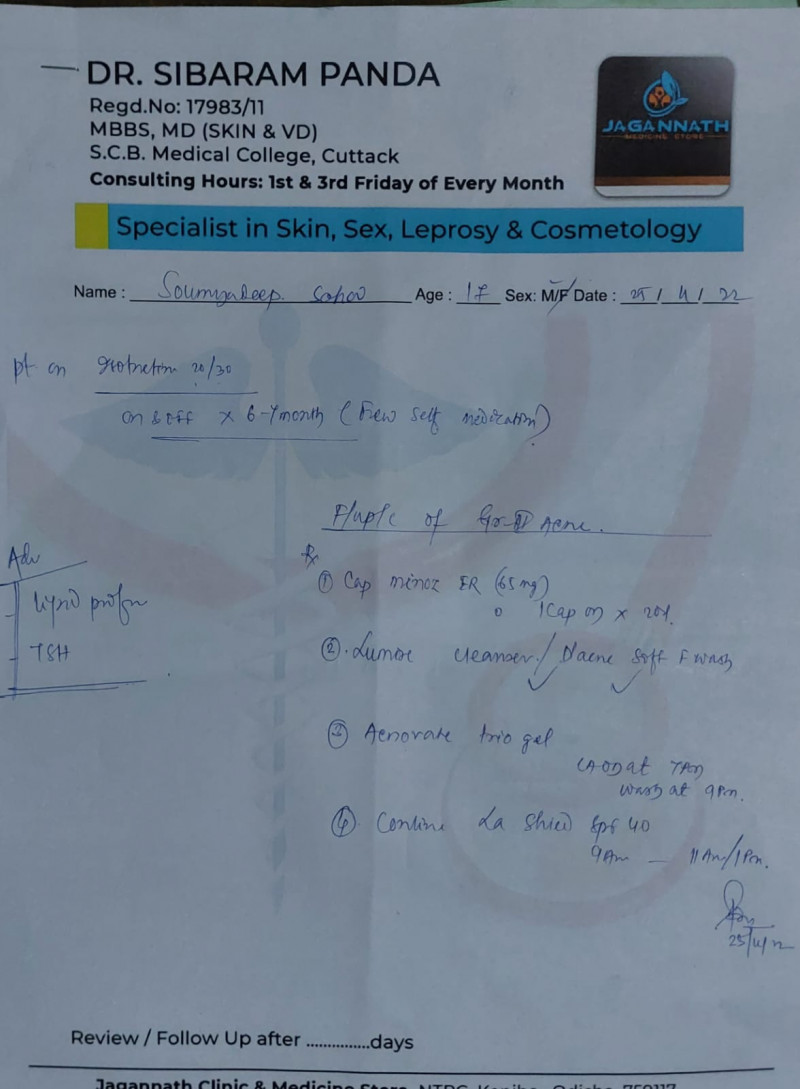 DR. SIBARAM PANDA
Regd.No: 17983/11
MBBS, MD (SKIN & VD)
S.C.B. Medical College, Cuttack
Consulting Hours: 1st & 3rd Friday of Every Month
JAGANNATH
MEDICINE STORE
Specialist in Skin, Sex, Leprosy & Cosmetology
Name : Soumyadeep Age : 17 Sex: M/F Date : 25/4/22
pt on 20/30
on & off x 6-7 month (Few self medication)
of Gr-II Acne.
Adv
lipid profile
TSH
Rx
① Cap minoz ER (65 mg)
1 Cap x 20d.
②. cleanser / Dacne soft F wash
③ Acnovate trio gel
at 7 Pm
wash at 9 Pm.
④. La Shield Spf 40
9 Am _ 11 Am/1 Pm.
25/4/22
Review / Follow Up after ...............days
Jagannath Clinic & Medicine Store, NTPC, Kaniha, Odisha-759117